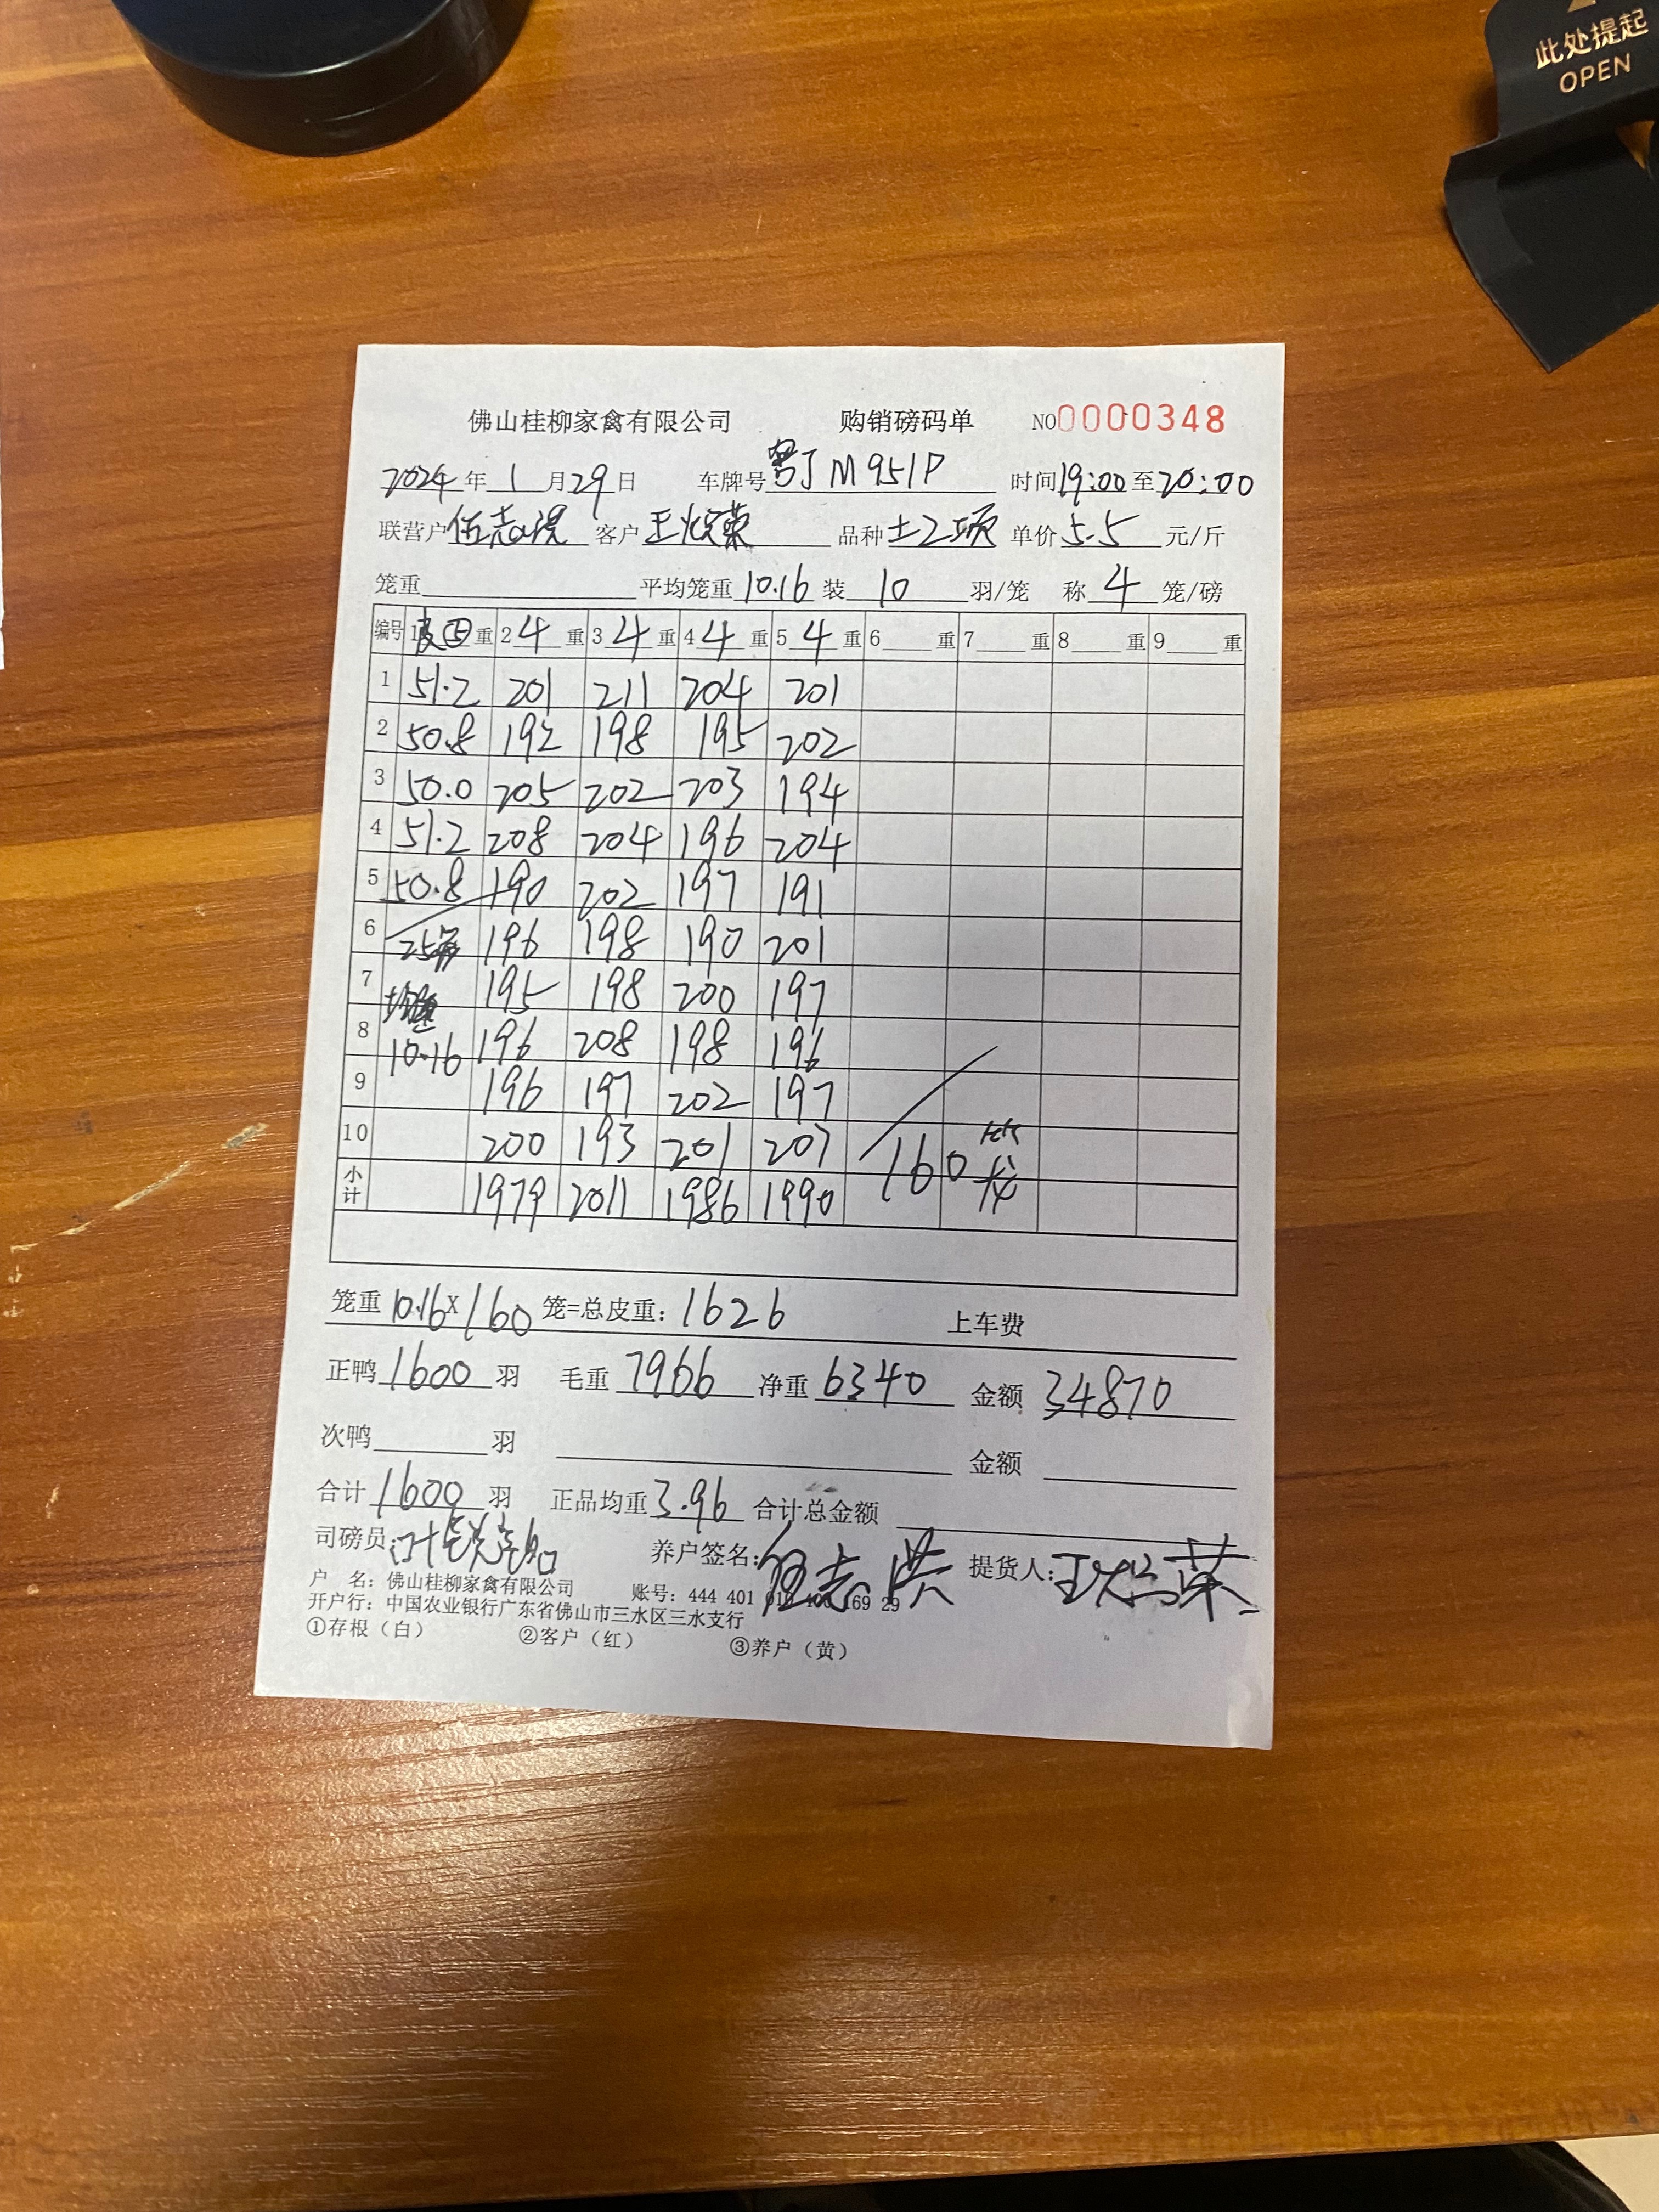 此处提起
OPEN
佛山桂柳家禽有限公司 购销磅码单 NO0000348
2024年1月29日 车牌号粤JM951P 时间19:00至20:00
联营户伍志洪 客户王灿荣 品种土2项 单价5.5元/斤
笼重 平均笼重10.16 装10羽/笼 称4笼/磅
编号 1皮⑤重 2 4重 3 4重 4 4重 5 4重 6 重 7 重 8 重 9 重
1 51.2 201 211 204 201
2 50.8 192 198 195 202
3 50.0 205 202 203 194
4 51.2 208 204 196 204
5 50.8 190 202 197 191
6 25 196 198 190 201
7 195 198 200 197
8 10.16 196 208 198 196
9 196 197 202 197
10 200 193 201 207 160
小计 1979 2011 1986 1990
笼重10.16X160笼=总皮重：1626 上车费
正鸭1600羽 毛重7966 净重6340 金额34870
次鸭 羽 金额
合计1600羽 正品均重3.96 合计总金额
司磅员： 养户签名：伍志洪 提货人：王灿荣
户 名：佛山桂柳家禽有限公司 账号：444 401 69 29
开户行：中国农业银行广东省佛山市三水区三水支行
①存根（白） ②客户（红） ③养户（黄）